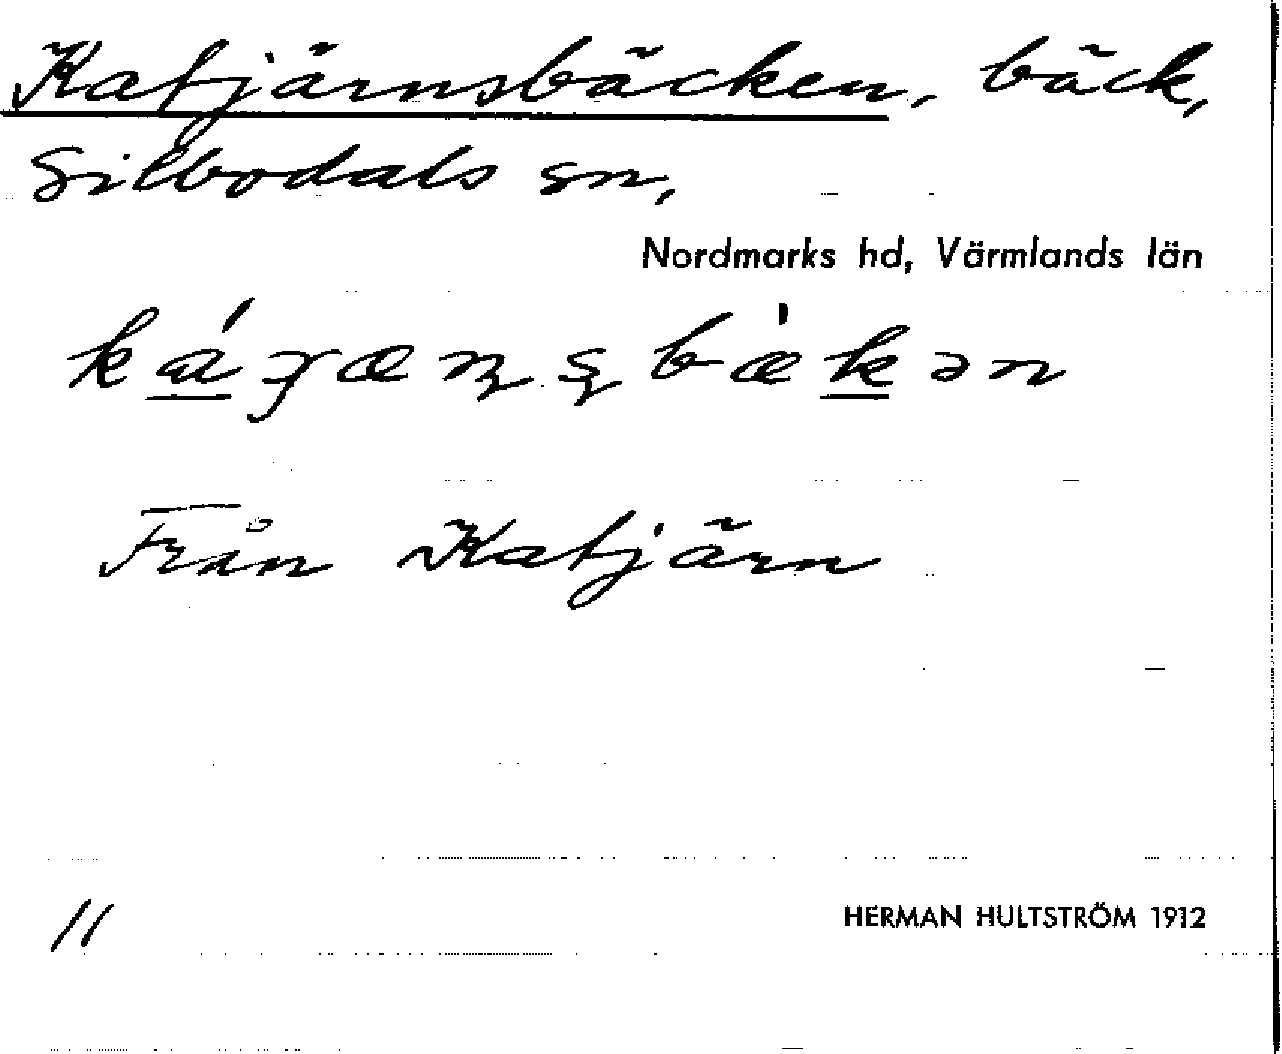 Katjärnsbäcken, bäck,
Silbodals sn,
Nordmarks hd, Värmlands län
Från Katjärn
11
HERMAN HULTSTRÖM 1912